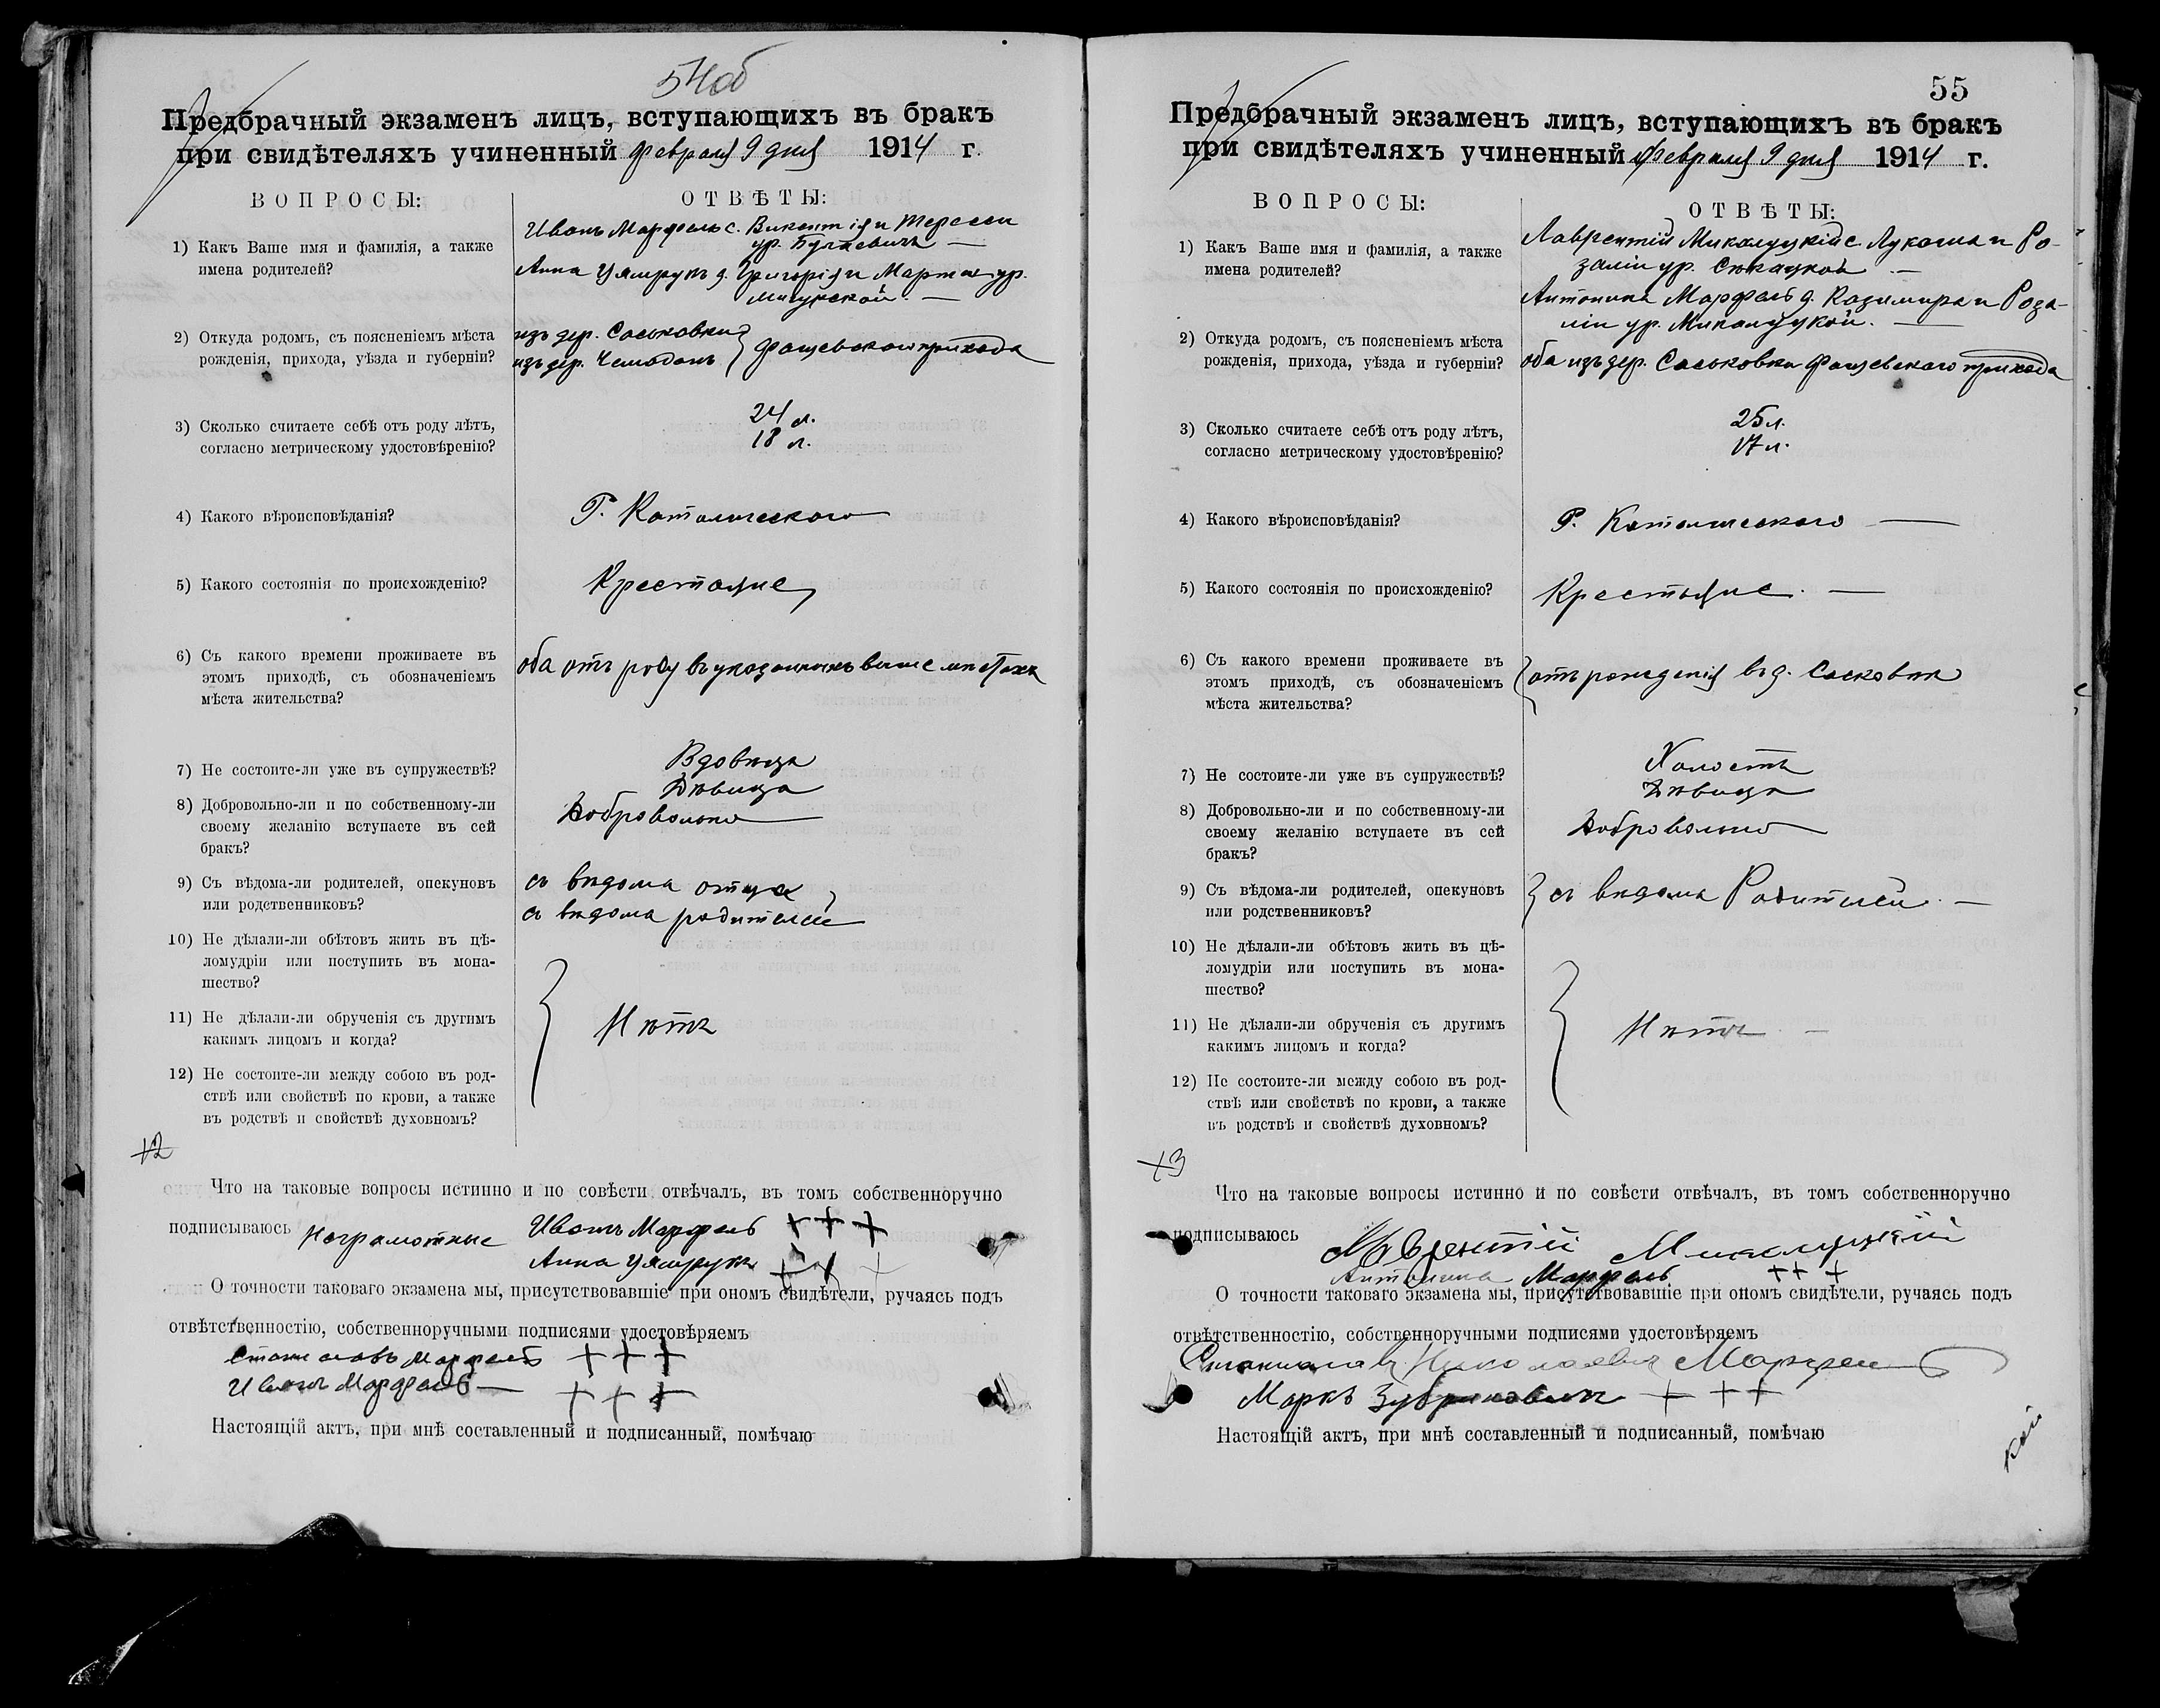 54об
Предбрачный экзаменъ лицъ, вступающихъ въ бракъ
при свидѣтеляхъ учиненный февраля 9 дня 1914 г.
ВОПРОСЫ:
ОТВѢТЫ:
1) Какъ Ваше имя и фамилія, а также
имена родителей?
Иванъ Марфель с. Викентія и Терессы
ур.
Анна д. Григорія и Марты ур.
2) Откуда родомъ, съ поясненіемъ мѣста
рожденія, прихода, уѣзда и губерніи?
изъ дер. Саськовки
изъ дер. Чемодань } Фащевского прихода
3) Сколько считаете себѣ отъ роду лѣтъ,
согласно метрическому удостовѣренію?
24 л.
18 л.
4) Какого вѣроисповѣданія?
Р. Католическаго
5) Какого состоянія по происхожденію?
Крестьяне
6) Съ какого времени проживаете въ
этомъ приходѣ, съ обозначеніемъ
мѣста жительства?
оба отъ роду въ указанныхъ выше мѣстахъ
7) Не состоите-ли уже въ супружествѣ?
Вдовецъ
Дѣвица
8) Добровольно-ли и по собственному-ли
своему желанію вступаете въ сей
бракъ?
Добровольно
9) Съ вѣдома-ли родителей, опекуновъ
или родственниковъ?
съ вѣдома отца
съ вѣдома родителей
10) Не дѣлали-ли обѣтовъ жить въ цѣ-
ломудріи или поступить въ мона-
шество?
11) Не дѣлали-ли обрученія съ другимъ
какимъ лицомъ и когда?
Нѣтъ
12) Не состоите-ли между собою въ род-
ствѣ или свойствѣ по крови, а также
въ родствѣ и свойствѣ духовномъ?
12
Что на таковые вопросы истинно и по совѣсти отвѣчалъ, въ томъ собственноручно
подписываюсь неграмотные Иванъ Марфель +++
Анна +++
О точности таковаго экзамена мы, присутствовавшіе при ономъ свидѣтели, ручаясь подъ
отвѣтственностію, собственноручными подписями удостовѣряемъ
Станиславъ Марфель +++
Иванъ Марфель +++
Настоящій актъ, при мнѣ составленный и подписанный, помѣчаю
55
Предбрачный экзаменъ лицъ, вступающихъ въ бракъ
при свидѣтеляхъ учиненный февраля 9 дня 1914 г.
ВОПРОСЫ:
ОТВѢТЫ:
1) Какъ Ваше имя и фамилія, а также
имена родителей?
Лаврентій Микалуцкій с. Лукаша и Ро-
заліи ур.
Антонина Марфель д. Казимира и Роза-
ліи ур. Микалуцкой.
2) Откуда родомъ, съ поясненіемъ мѣста
рожденія, прихода, уѣзда и губерніи?
оба изъ дер. Саськовки Фащевского прихода
3) Сколько считаете себѣ отъ роду лѣтъ,
согласно метрическому удостовѣренію?
25 л.
17 л.
4) Какого вѣроисповѣданія?
Р. Католическаго
5) Какого состоянія по происхожденію?
Крестьяне.
6) Съ какого времени проживаете въ
этомъ приходѣ, съ обозначеніемъ
мѣста жительства?
отъ рожденія въ д. Сасковкѣ
7) Не состоите-ли уже въ супружествѣ?
Холостъ
Дѣвица
8) Добровольно-ли и по собственному-ли
своему желанію вступаете въ сей
бракъ?
Добровольно
9) Съ вѣдома-ли родителей, опекуновъ
или родственниковъ?
съ вѣдома Родителей.
10) Не дѣлали-ли обѣтовъ жить въ цѣ-
ломудріи или поступить въ мона-
шество?
11) Не дѣлали-ли обрученія съ другимъ
какимъ лицомъ и когда?
Нѣтъ.
12) Не состоите-ли между собою въ род-
ствѣ или свойствѣ по крови, а также
въ родствѣ и свойствѣ духовномъ?
13
Что на таковые вопросы истинно и по совѣсти отвѣчалъ, въ томъ собственноручно
подписываюсь Лаврентій Микалуцкій
Антонина Марфель +++
О точности таковаго экзамена мы, присутствовавшіе при ономъ свидѣтели, ручаясь подъ
отвѣтственностію, собственноручными подписями удостовѣряемъ
Станиславъ Николаевъ Марфель
Маркъ +++
Настоящій актъ, при мнѣ составленный и подписанный, помѣчаю
кой